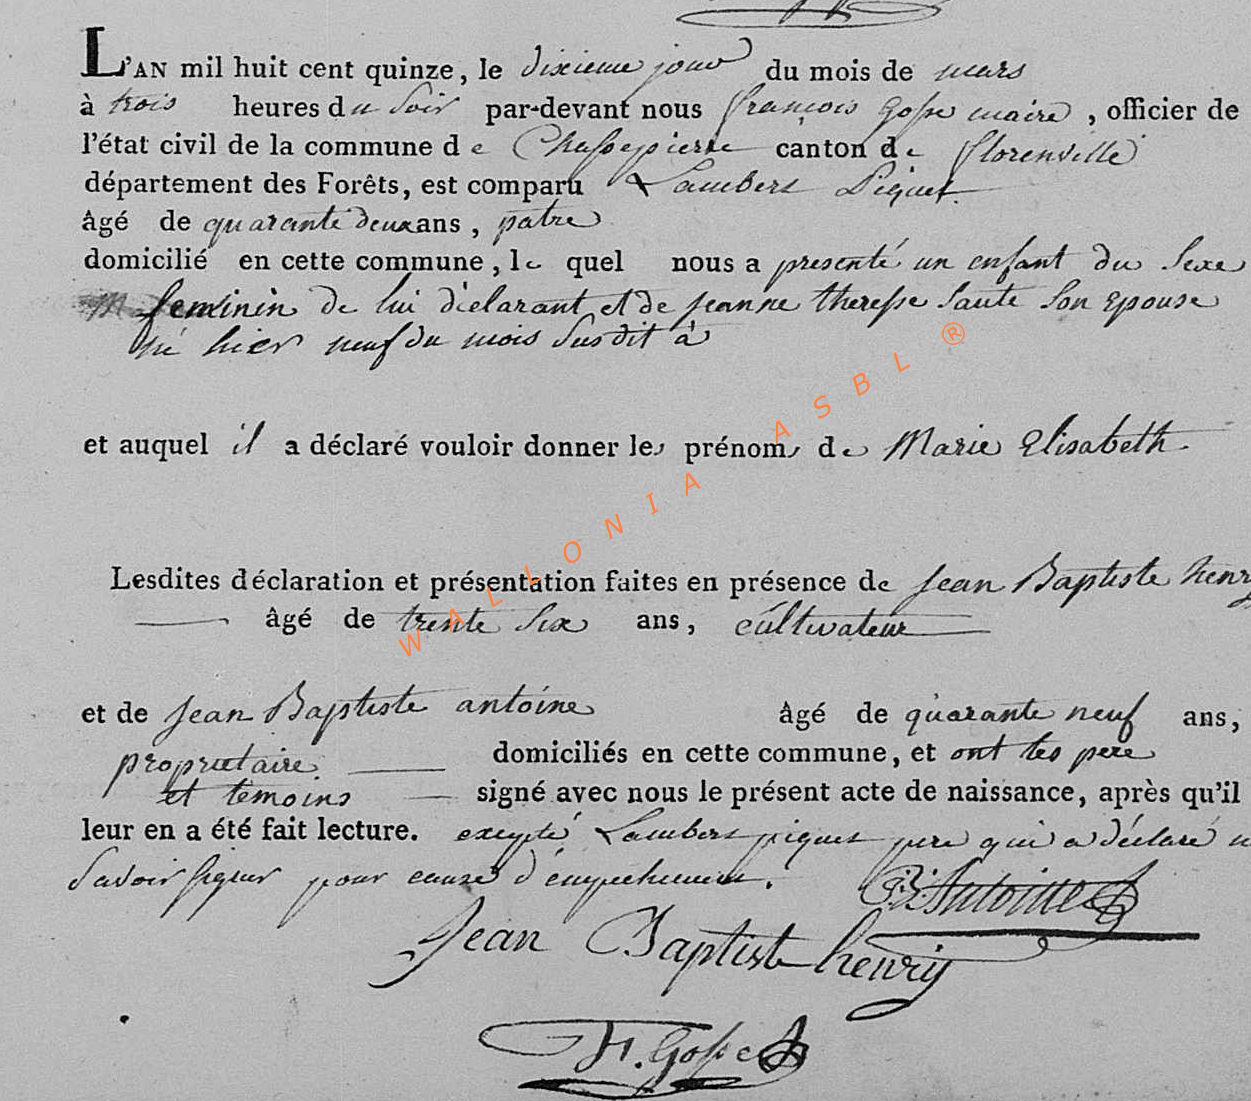 L'AN mil huit cent quinze, le dixieme jour du mois de mars
à trois heures du soir par-devant nous françois Gosse maire, officier de
l'état civil de la commune de Chassepierre canton de florenville
département des Forêts, est comparu Lambert Piquet
âgé de quarante deux ans, patre
domicilié en cette commune, le quel nous a presenté un enfant du Sexe
feminin de lui déclarant et de jeanne theresse Saute Son Epouse
né hier neuf du mois Susdit à
et auquel il a déclaré vouloir donner les prénoms de Marie Elisabeth
Lesdites déclaration et présentation faites en présence de jean Baptiste henry
âgé de trente Six ans, cultivateur
et de jean Baptiste antoine âgé de quarante neuf ans,
proprietaire domiciliés en cette commune, et ont les pere
et temoins signé avec nous le présent acte de naissance, après qu'il
leur en a été fait lecture. excepté Lambert piquet pere qui a déclaré
Savoir signer pour cause d'empechement.
JB: Antoine
Jean Baptiste henry
H. Gosse
WALLONIA ASBL ®